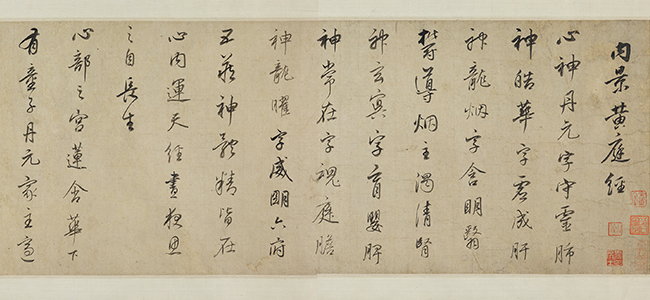 內景黃庭經
心神丹元字守靈肺
神皓華字虛成肝
神龍烟字含明翳
鬱導烟主濁清腎
神玄冥字育嬰脾
神常在字魂庭膽
神龍曜字威明六府
五藏神體精皆在
心內運天經晝夜思
之自長生
心部之宮蓮含華下
有童子丹元家主適